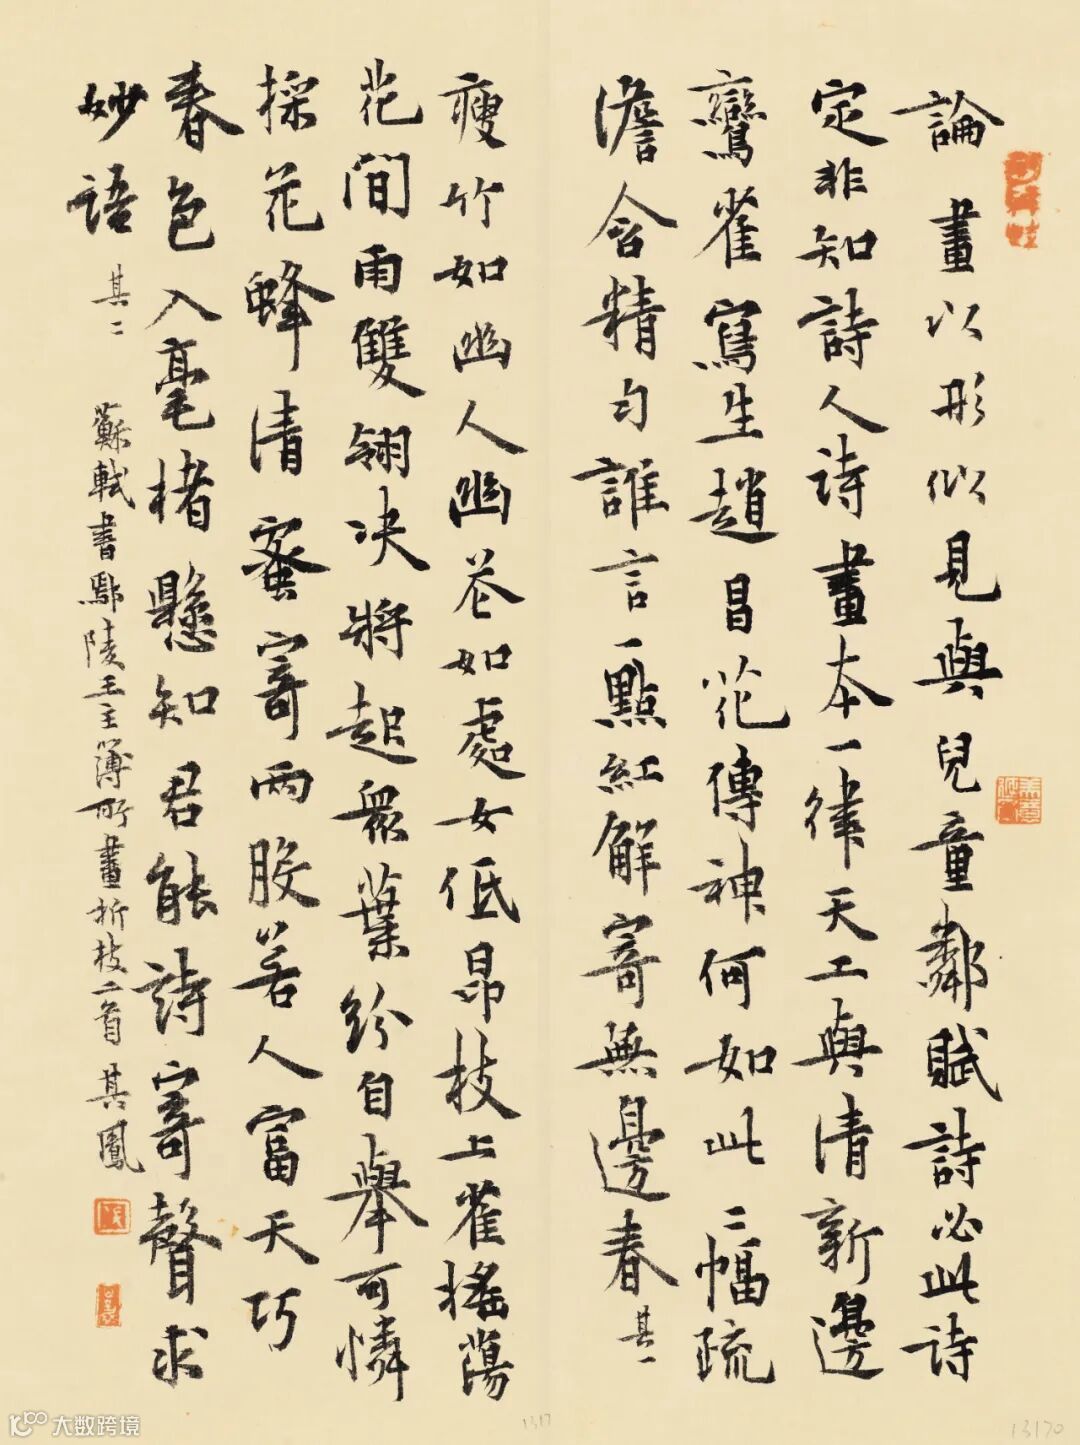 論畫以形似見與兒童鄰賦詩必此詩
定非知詩人詩畫本一律天工與清新邊
鸞雀寫生趙昌花傳神何如此二幅疏
澹含精勻誰言一點紅解寄無邊春 其一
瘦竹如幽人幽花如處女低昂枝上雀搖蕩
花間雨雙翎决將起眾葉紛自舉可憐
採花蜂清蜜寄两股若人富天巧
春色入毫楮懸知君能詩寄聲求
妙語 其二 蘇軾書鄢陵王主簿所畫折枝二首 其鳳
1317
13170
大数跨境